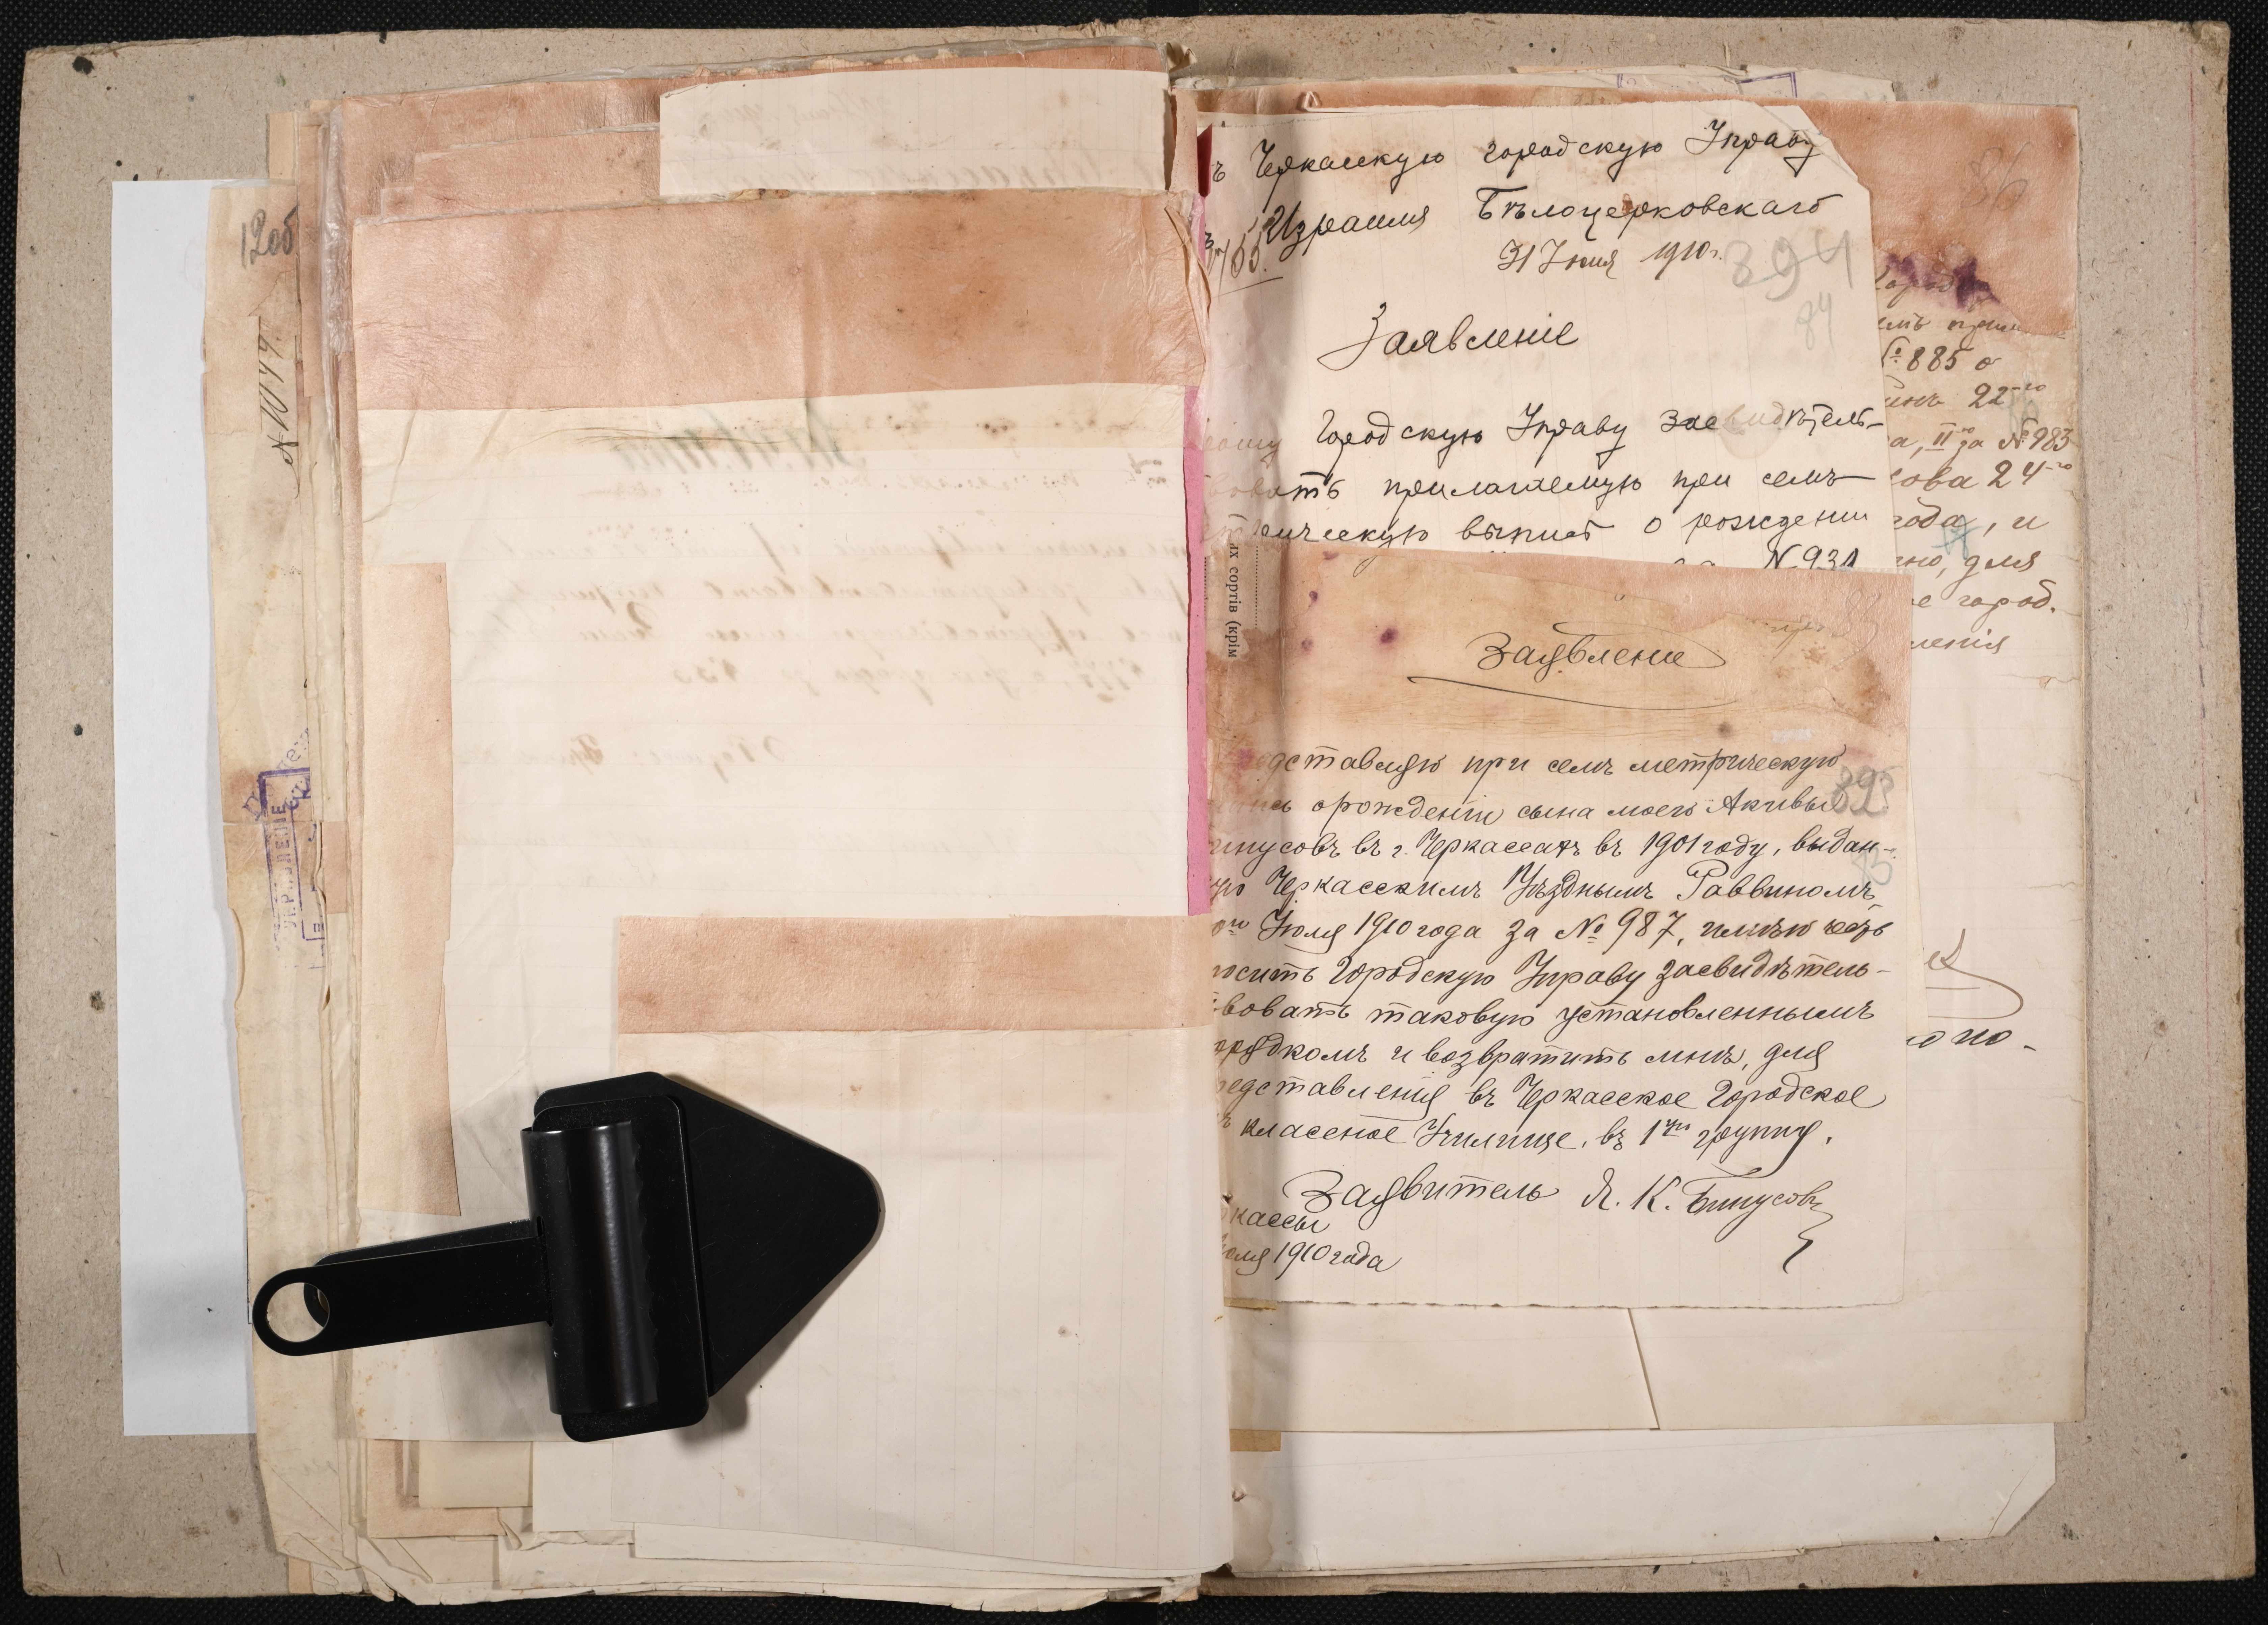 12об
№ 1044.
УПРАВЛЕНІЕ
ъ Черкасскую городскую Управу
Израиля Бѣлоцерковскаго
3755.
31 Іюля 1910 г.
394
84
Заявленіе
Городскую Управу засвидѣтель-
вовать прилагаемую при семъ
рическую выпись о рожденіи
N 931
их сортів (крім
86
Город
№ 885 о
22-го
а, II за № 983
сова 24-го
года, и
но, для
е город.
ленія
по-
Заявление
83
едставляю при семъ метрическую
пись о рожденіи сына моего Акивы
инусовъ въ г. Черкассахъ въ 1901 году, выдан-
ую Черкасскимъ Уѣзднымъ Раввиномъ
го Іюля 1910 года за № 987, имѣю честь
осить Городскую Управу засвидѣтель-
вовать таковую установленнымъ
орядкомъ и возвратить мнѣ, для
редставленія въ Черкасское Городское
классное Училище, въ 1ую группу.
Заявитель Я. К. Бинусовъ
кассы
юля 1910 года